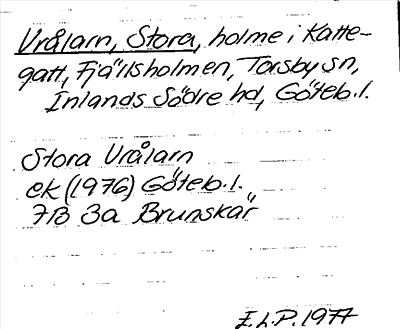 Vrålarn, Stora, holme i Katte-
gatt, Fjällsholmen, Torsby sn,
Inlands Södre hd, Göteb.l.
Stora Vrålarn
ek (1976) Göteb.l.
7B 3a Brunskär
E.L.P. 1977